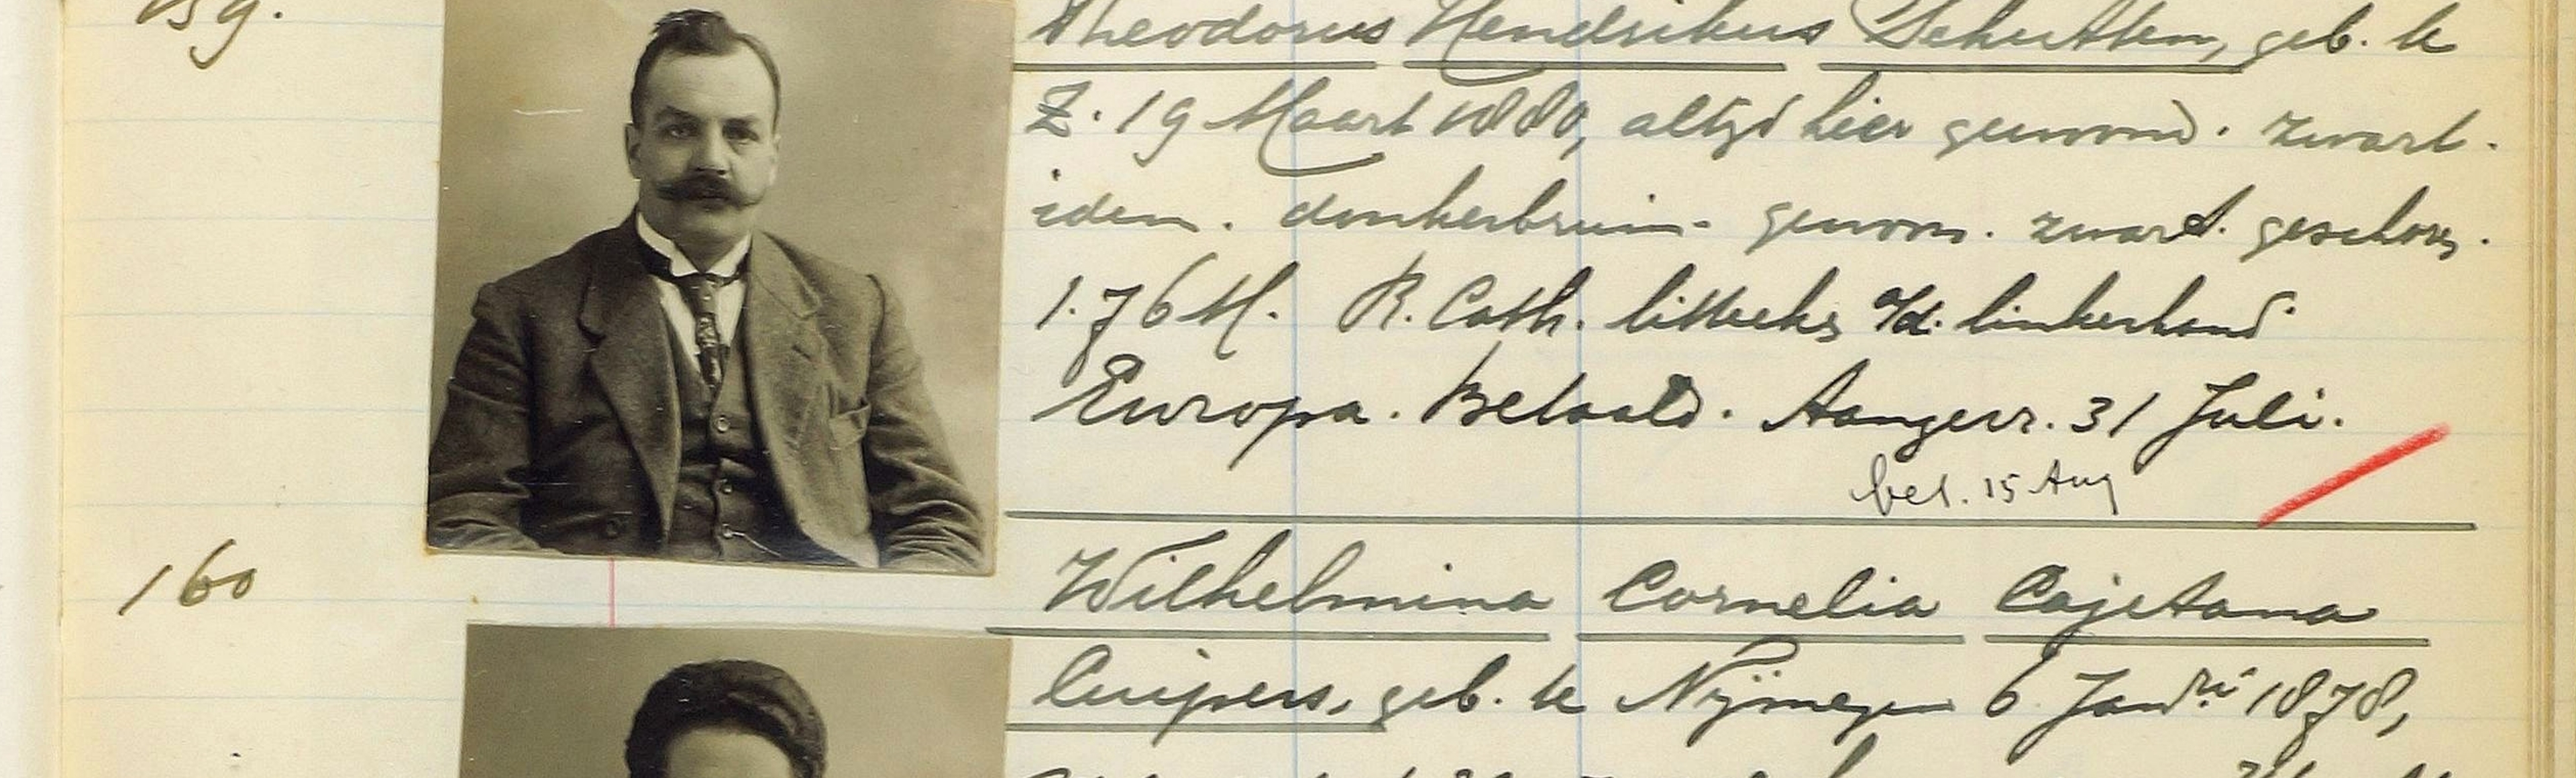 159.
Theodorus Hendrikus Schutten, geb. te
Z. 19 Maart 1880, altyd hier gewoond. zwart.
idem. donkerbruin. gewoon. zwart. geschoren.
1.76 M. R. Cath. litteeken a/d. linkerhand
Europa. Betaald. Aangevr. 31 Juli.
bet. 15 Aug
160
Wilhelmina Cornelia Cajetana
Cuipers, geb. te Nijmegen 6 Jan.ri 1878,